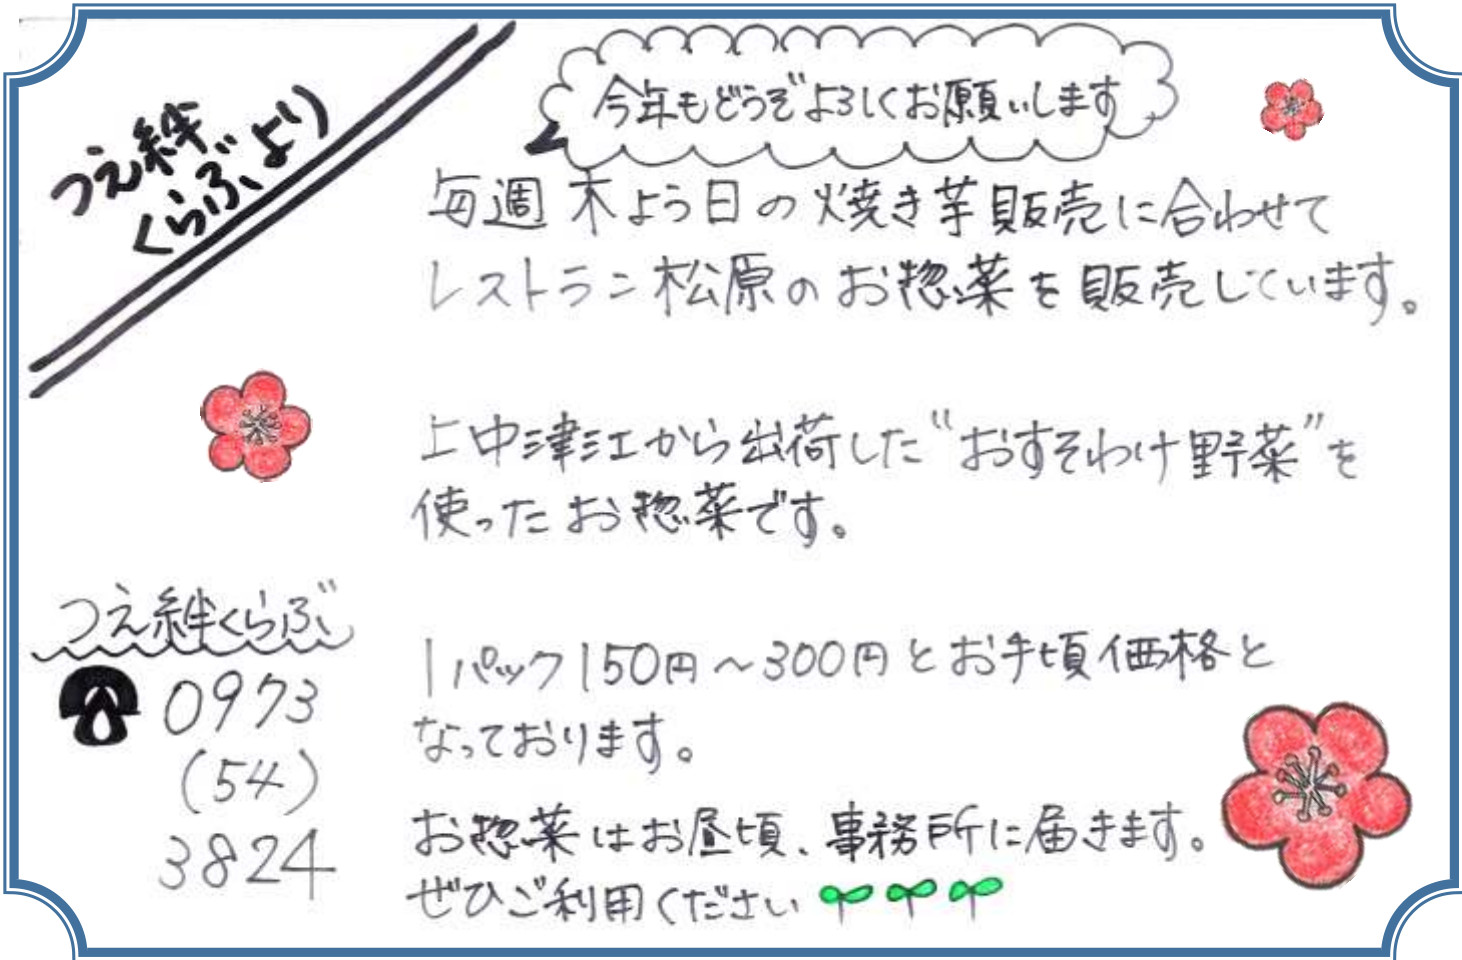 つえ絆
くらぶより
今年もどうぞよろしくお願いします
毎週木よう日の焼き芋販売に合わせて
レストラン松原のお惣菜を販売しています。
上中津江から出荷した“おすそわけ野菜”を
使ったお惣菜です。
1パック150円～300円とお手頃価格と
なっております。
お惣菜はお昼頃、事務所に届きます。
ぜひご利用ください
つえ絆くらぶ
0973
(54)
3824